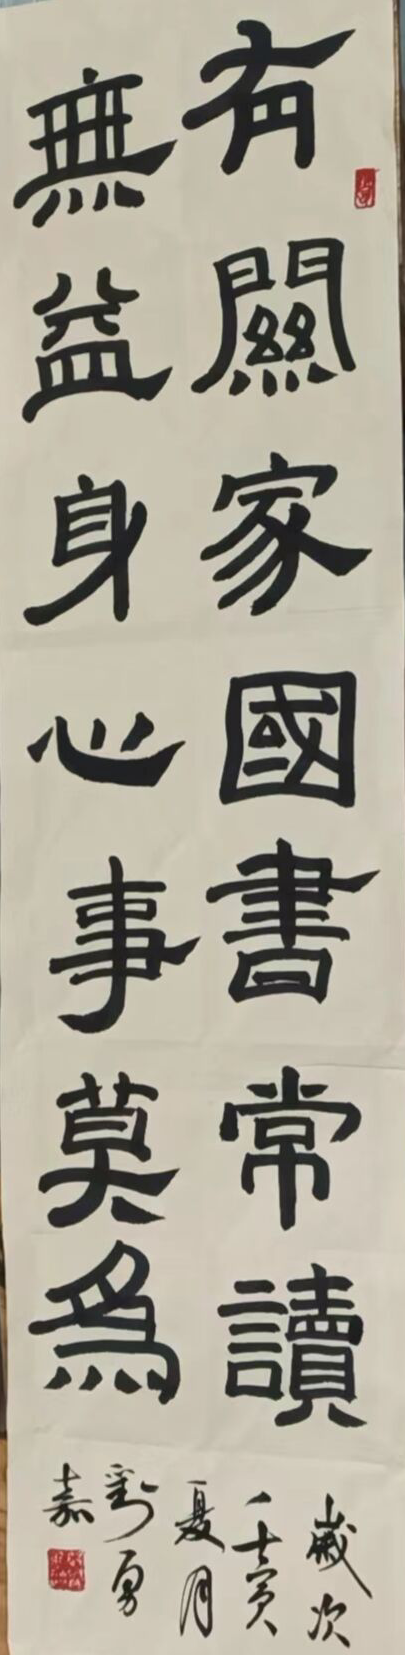 有關家國書常讀
無益身心事莫為
歲次
壬寅
夏月
劉勇
嘉